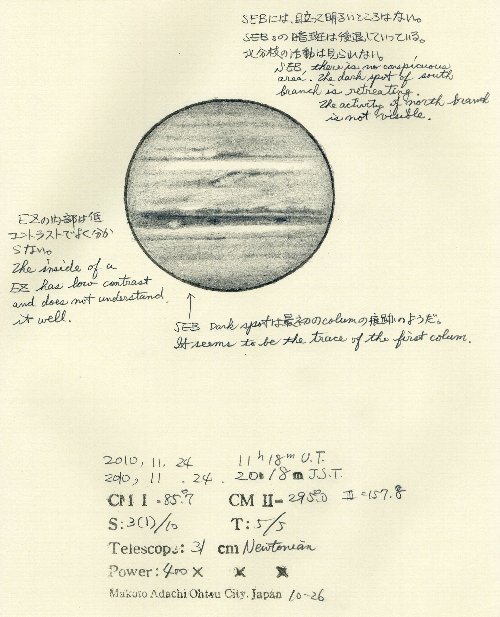 SEBには、目立って明るいところはない。
SEBsの暗斑は後退していっている。
北分枝の活動は見られない。
SEB, there is no conspicuous
area. The dark spot of south
branch is retreating.
The activity of north branch
is not visible.
EZの内部は低
コントラストでよく分か
らない。
The inside of a
EZ has low contrast
and does not understand
it well.
SEB Dark spotは最初のcolumの痕跡のようだ。
It seems to be the trace of the first colum.
2010, 11. 24 11h18m U.T.
2010, 11 . 24 . 20h18m J.S.T.
CM I =85.7° CM II=295.0° III=157.8°
S: 3(1)/10 T: 5/5
Telescope: 31 cm Newtonian
Power: 400× × ×
Makoto Adachi Ohtsu City. Japan 10-26